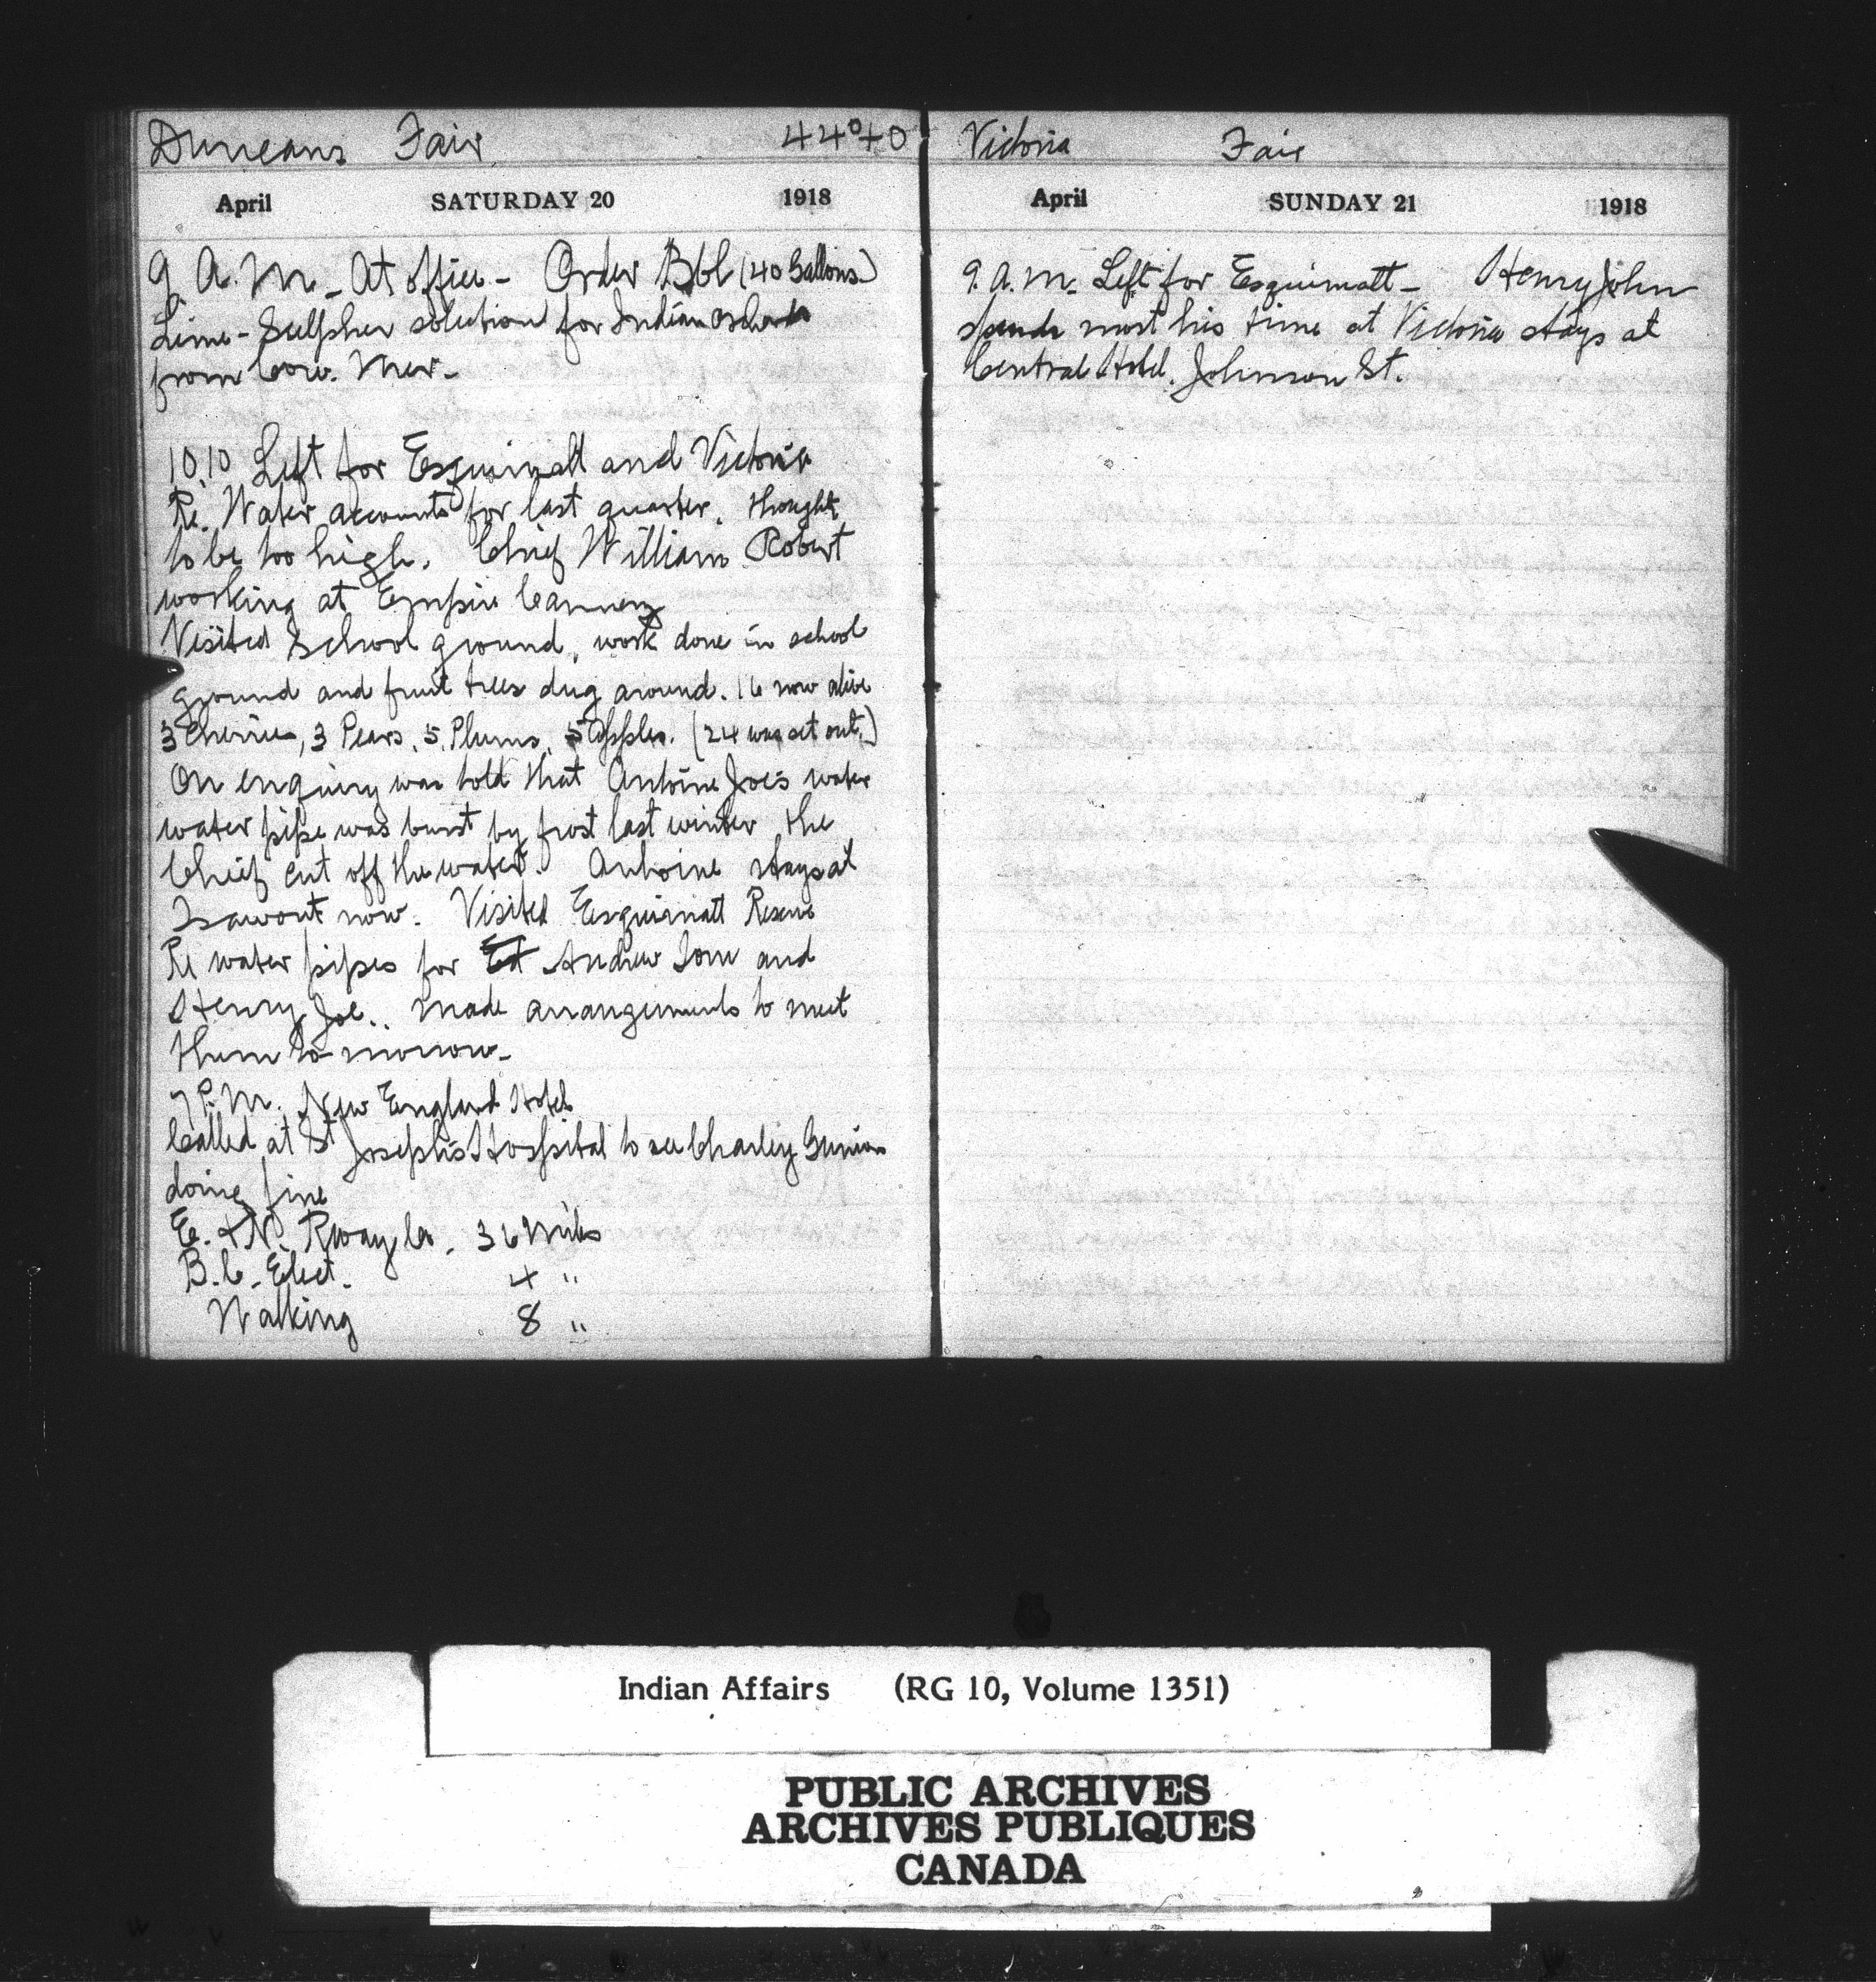 Duncans Fair 44°+0
April SATURDAY 20 1918
9 A.M. At office - Order Bbl (40 Gallons)
Lime - Sulpher solution for Indian
from Cow. Mer.
10.10 Left for Esquimalt and Victoria
Re. Water accounts for last quarter, thought
to be too high. Chief William Robert
working at Empire Cannery
Visited School ground, work done in school
ground and fruit trees dug around. 16 now alive
3 Cherries, 3 Pears, 5 Plums, 5 Apples. (24 was set out.)
On enquiry was told that Antoine Joe's water
water pipe was burst by frost last winter the
Chief cut off the water. Antoine stays at
Tsawout now. Visited Esquimalt Reserve
Re water pipes for Ed Andrew Tom and
Henry Joe.. Made arrangements to meet
them to-morrow-
7 P.M. New England Hotel
Called at St Joseph's Hospital to see Charley
doing fine
E. & N. Rway Co. 36 Miles
B.C. Elect. 4 "
Walking 8 "
Victoria Fair
April SUNDAY 21 1918
9. A.M. Left for Esquimalt - Henry John
spends most his time at Victoria stays at
Central Hotel. Johnson St.
Indian Affairs (RG 10, Volume 1351)
PUBLIC ARCHIVES
ARCHIVES PUBLIQUES
CANADA